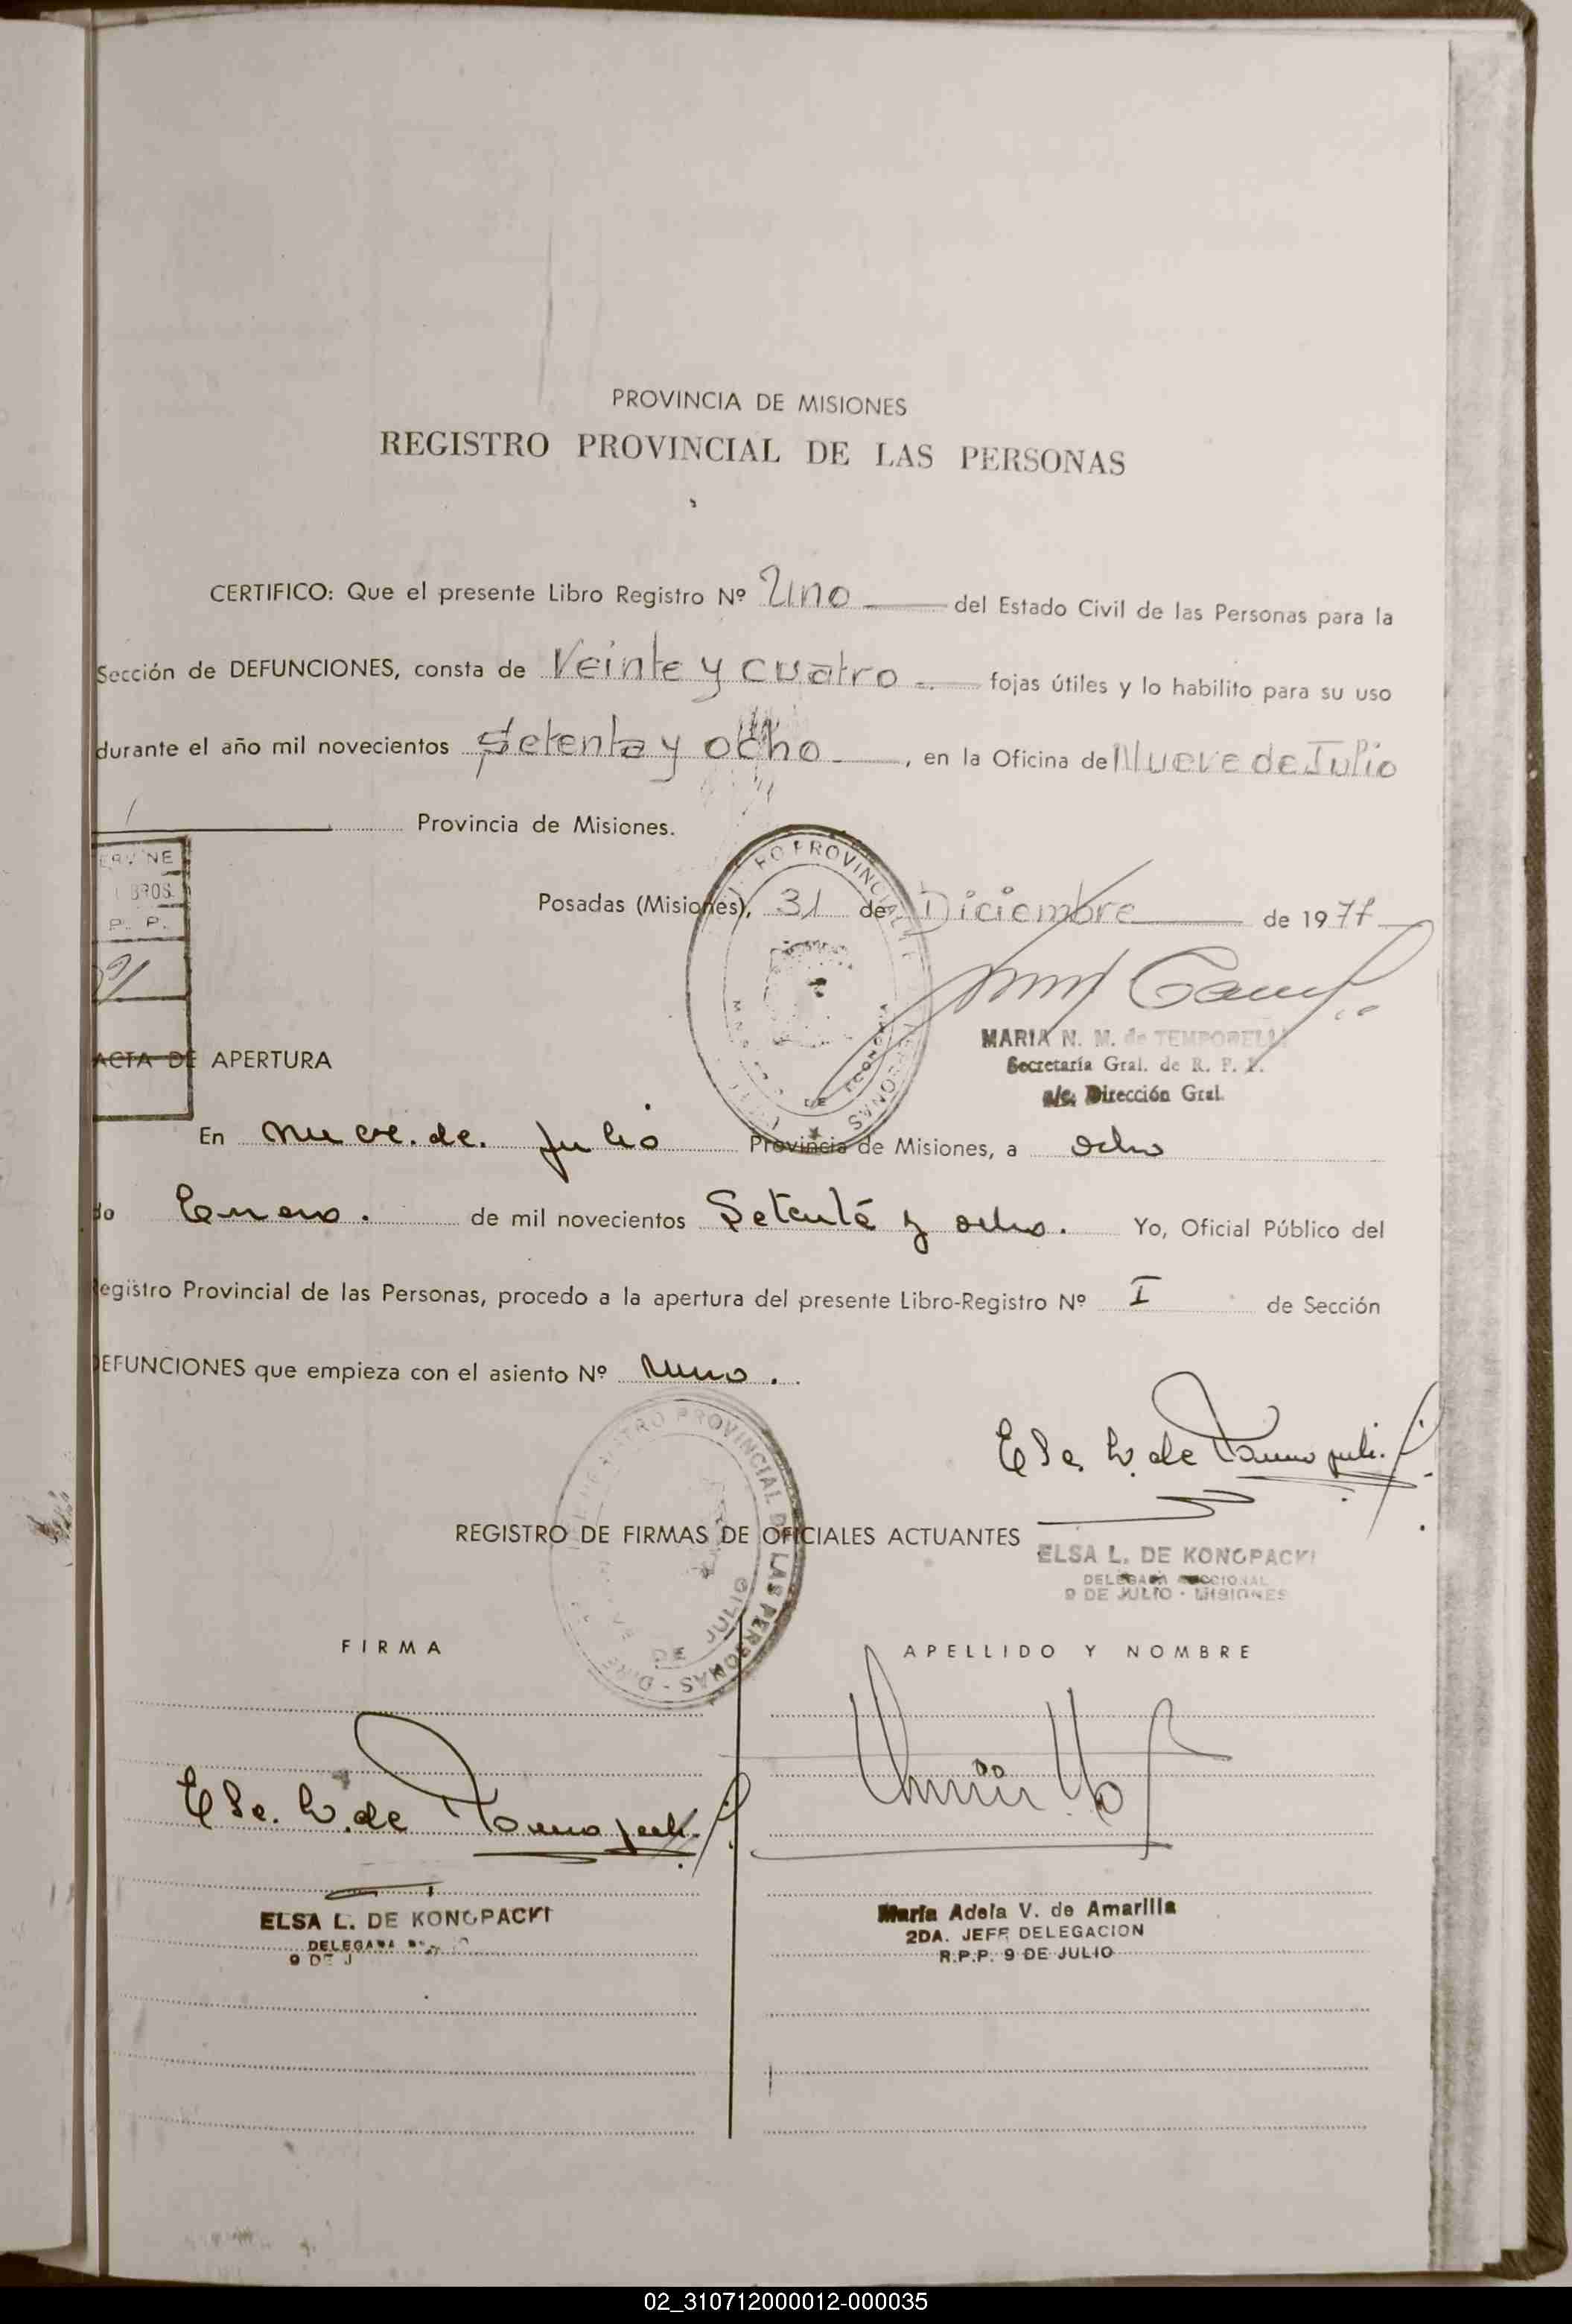 PROVINCIA DE MISIONES
REGISTRO PROVINCIAL DE LAS PERSONAS
CERTIFICO: Que el presente Libro Registro Nº Uno del Estado Civil de las Personas para la
Sección de DEFUNCIONES, consta de Veinte y cuatro fojas útiles y lo habilito para su uso
durante el año mil novecientos setenta y ocho, en la Oficina de Nueve de Julio
Provincia de Misiones.
Posadas (Misiones), 31 de Diciembre de 1977
MARIA N. M. de TEMPORELLI
Secretaría Gral. de R. P. P.
a/c. Dirección Gral.
ACTA DE APERTURA
En nueve de julio Provincia de Misiones, a ocho
do Enero. de mil novecientos Setenta y ocho. Yo, Oficial Público del
egistro Provincial de las Personas, procedo a la apertura del presente Libro-Registro Nº I de Sección
EFUNCIONES que empieza con el asiento Nº uno.
REGISTRO DE FIRMAS DE OFICIALES ACTUANTES
ELSA L. DE KONOPACKI
DELEGADA SECCIONAL
9 DE JULIO - MISIONES
FIRMA APELLIDO Y NOMBRE
ELSA L. DE KONOPACKI
DELEGADA
9 DE J
María Adela V. de Amarilla
2DA. JEFE DELEGACION
R.P.P. 9 DE JULIO
02_310712000012-000035